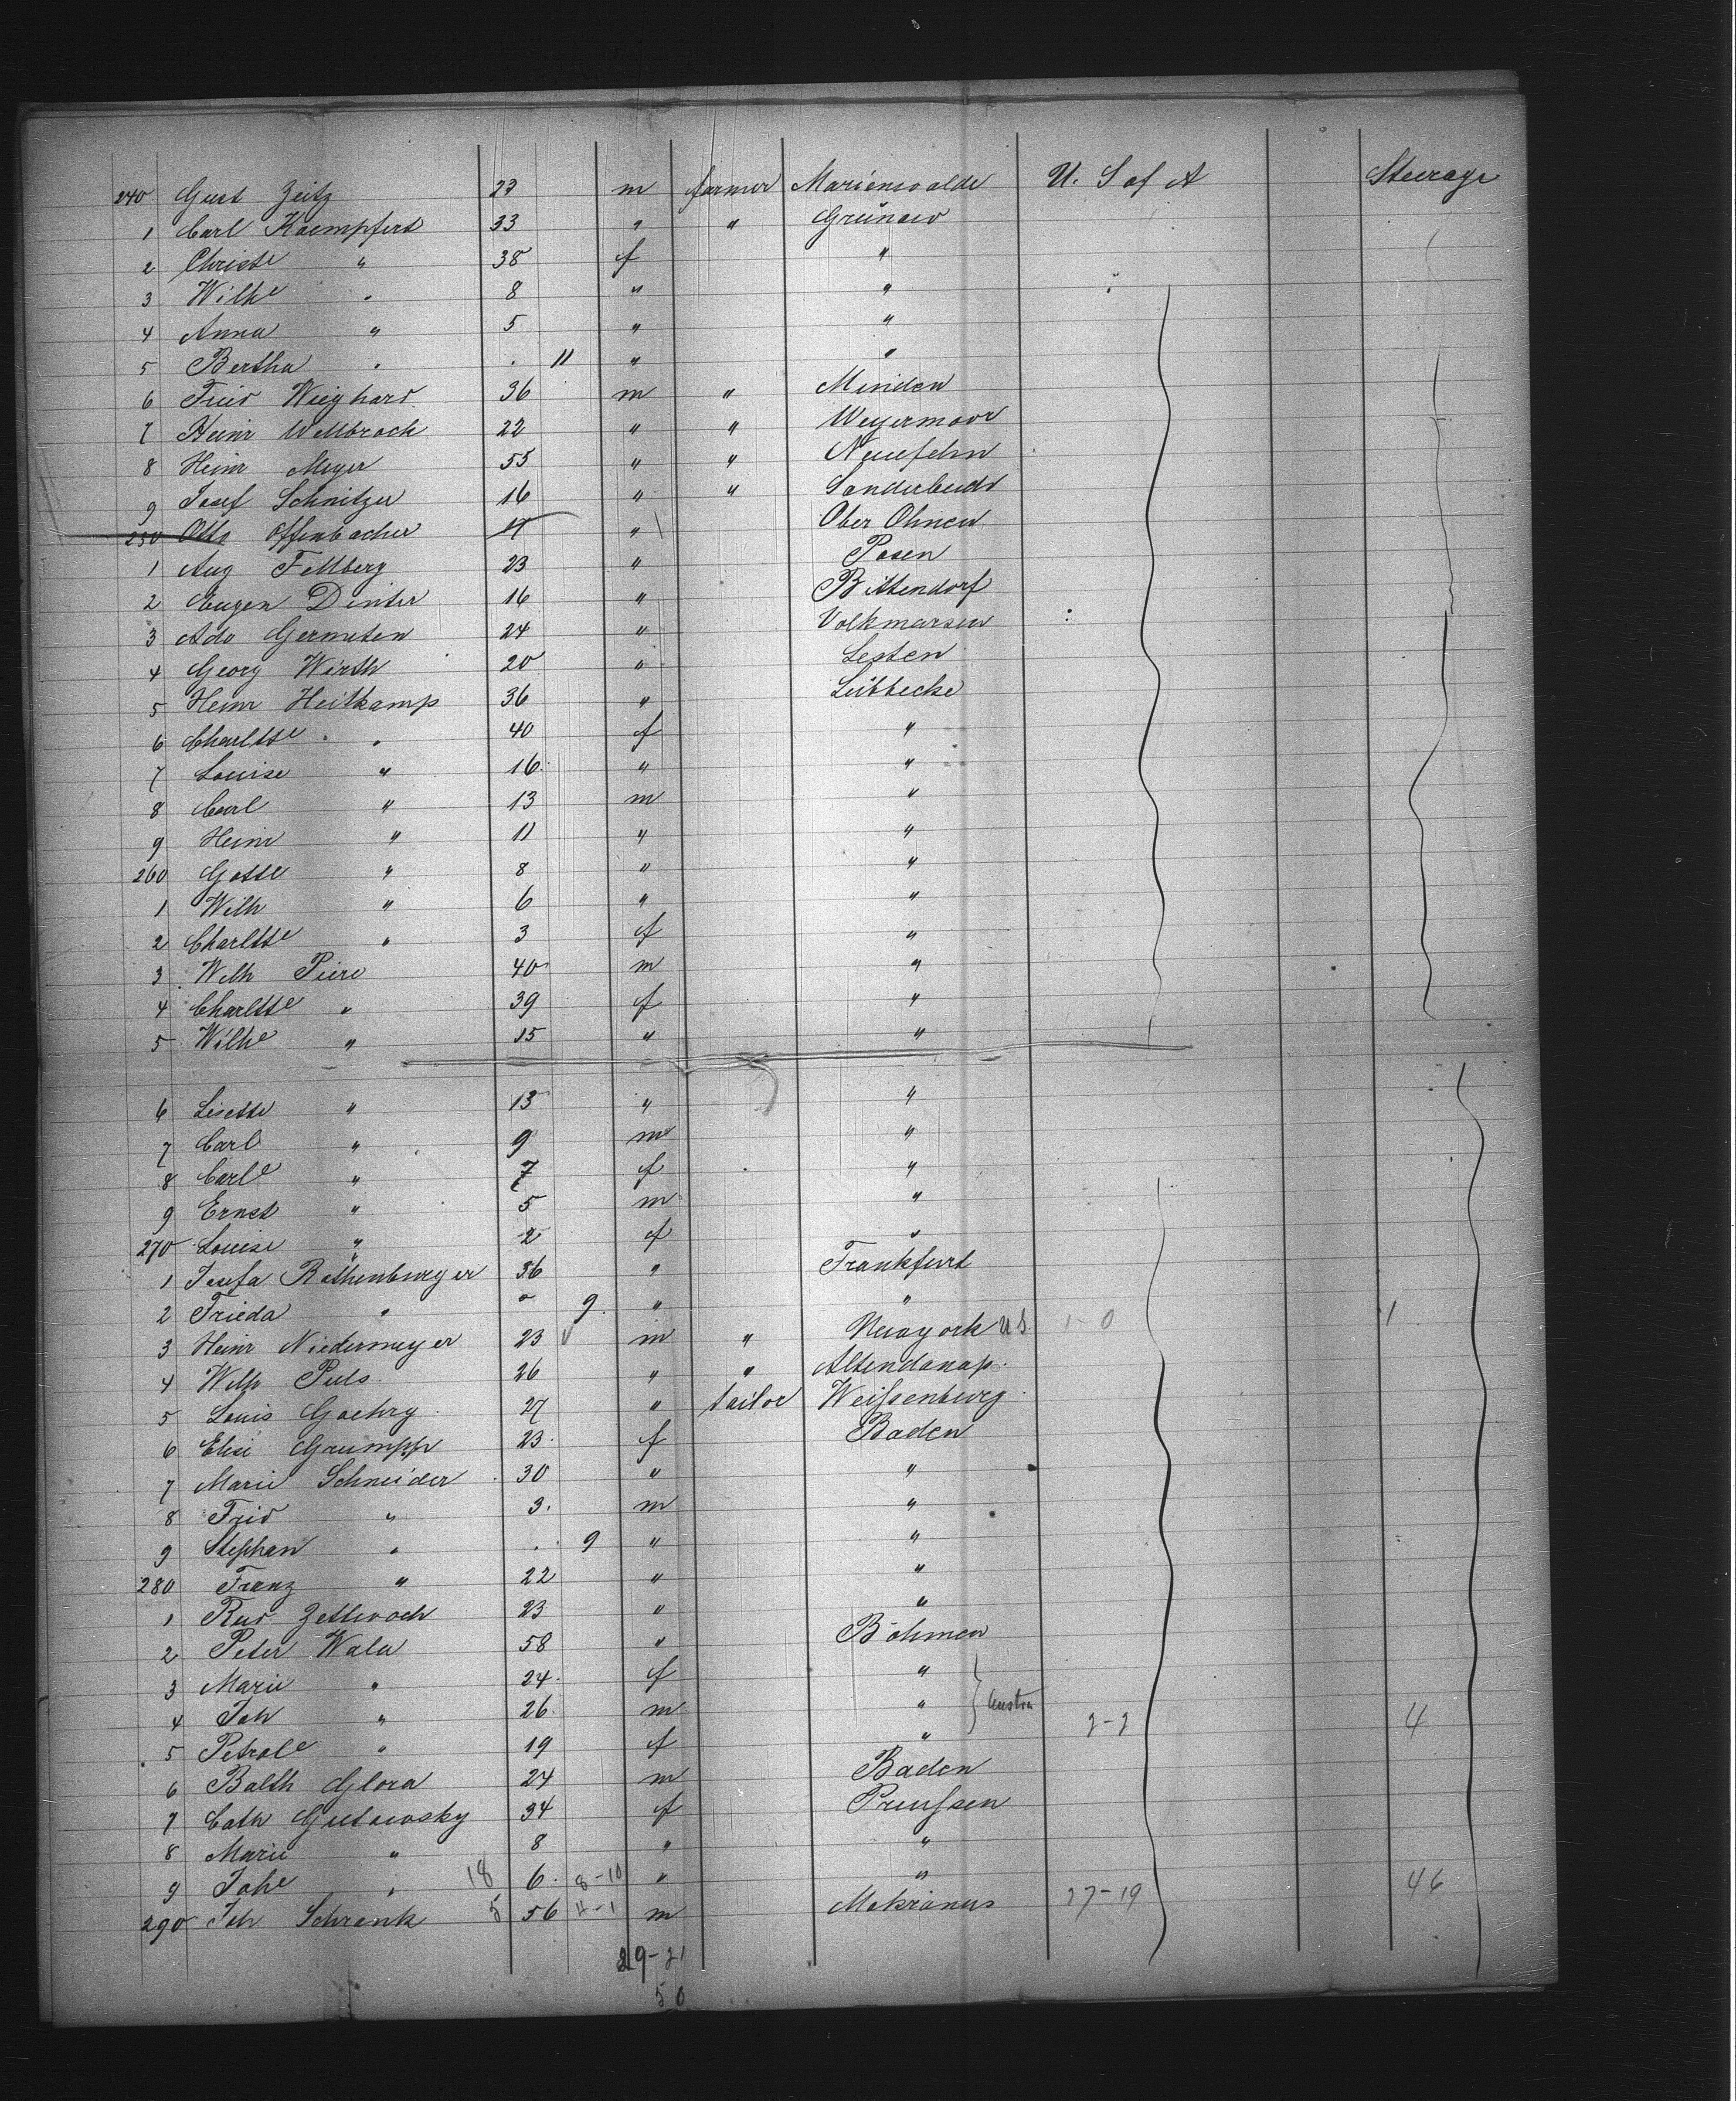 240 Gust Zeitz 23 m farmer Marienwalde U. S of A Steerage
1 Carl Kaempfert 33 " " Grünow
2 Christe " 38 f "
3 Wilhe " 8 " "
4 Anna " 5 " "
5 Bertha " . 11 " "
6 Fried Wieghard 36 m " Minden
7 Heinr Wellbrock 22 " " Weyermoor
8 Heinr Meyer 55 " " Neuefehn
9 Josef Schnitzer 16 " "
250 Otto Offenbacher "
1 Aug Fellberg 23 " Posen
2 Eugen Dinter 16 " Bittendorf
3 Ado Germuten 24 " Volkmarsen
4 Georg Wirth 20 " Lesten
5 Heinr Heitkamp 36 " Lübbecke
6 Charltte " 40 f "
7 Louise " 16 " "
8 Carl " 13 m "
9 Heinr " 11 " "
260 Gottl " 8 " "
1 Wilh " 6 " "
2 Charltte " 3 f "
3 Wilh Piere 40 m "
4 Charltte " 39 f "
5 Wilhe " 15 " "
6 Lisette " 13 " "
7 Carl " 9 m "
8 Carle " 7 f "
9 Ernst " 5 m "
270 Louise " 2 f "
1 Josefa Rothenburger 36 " Frankfurt
2 Frieda " 9 " "
3 Heinr Niedermeyer 23 m " Newyork U S. 1-0 1
4 Wilh Puls 26 " "
5 Louis Goehry 27 " tailor Weißenburg
6 Elise Grumpp 23 f Baden
7 Marie Schneider 30 " "
8 Frid " 3. m "
9 Stephan " . 9 " "
280 Franz " 22 " "
1 Rud Zettwoch 23 " "
2 Peter Wala 58 " Böhmen
3 Marie " 24 f "
4 Joh " 26 m " } Austria 2-2 4
5 Petrole " 19 f "
6 Balth Glora 24 m Baden
7 Cath Gutowsky 34 f Preußen
8 Marie " 8 " "
9 Johe " 18 6. 8-10 " " 46
290 Joh Schrenk 5 56 11-1 m Mokranus 27-19
29-21
50